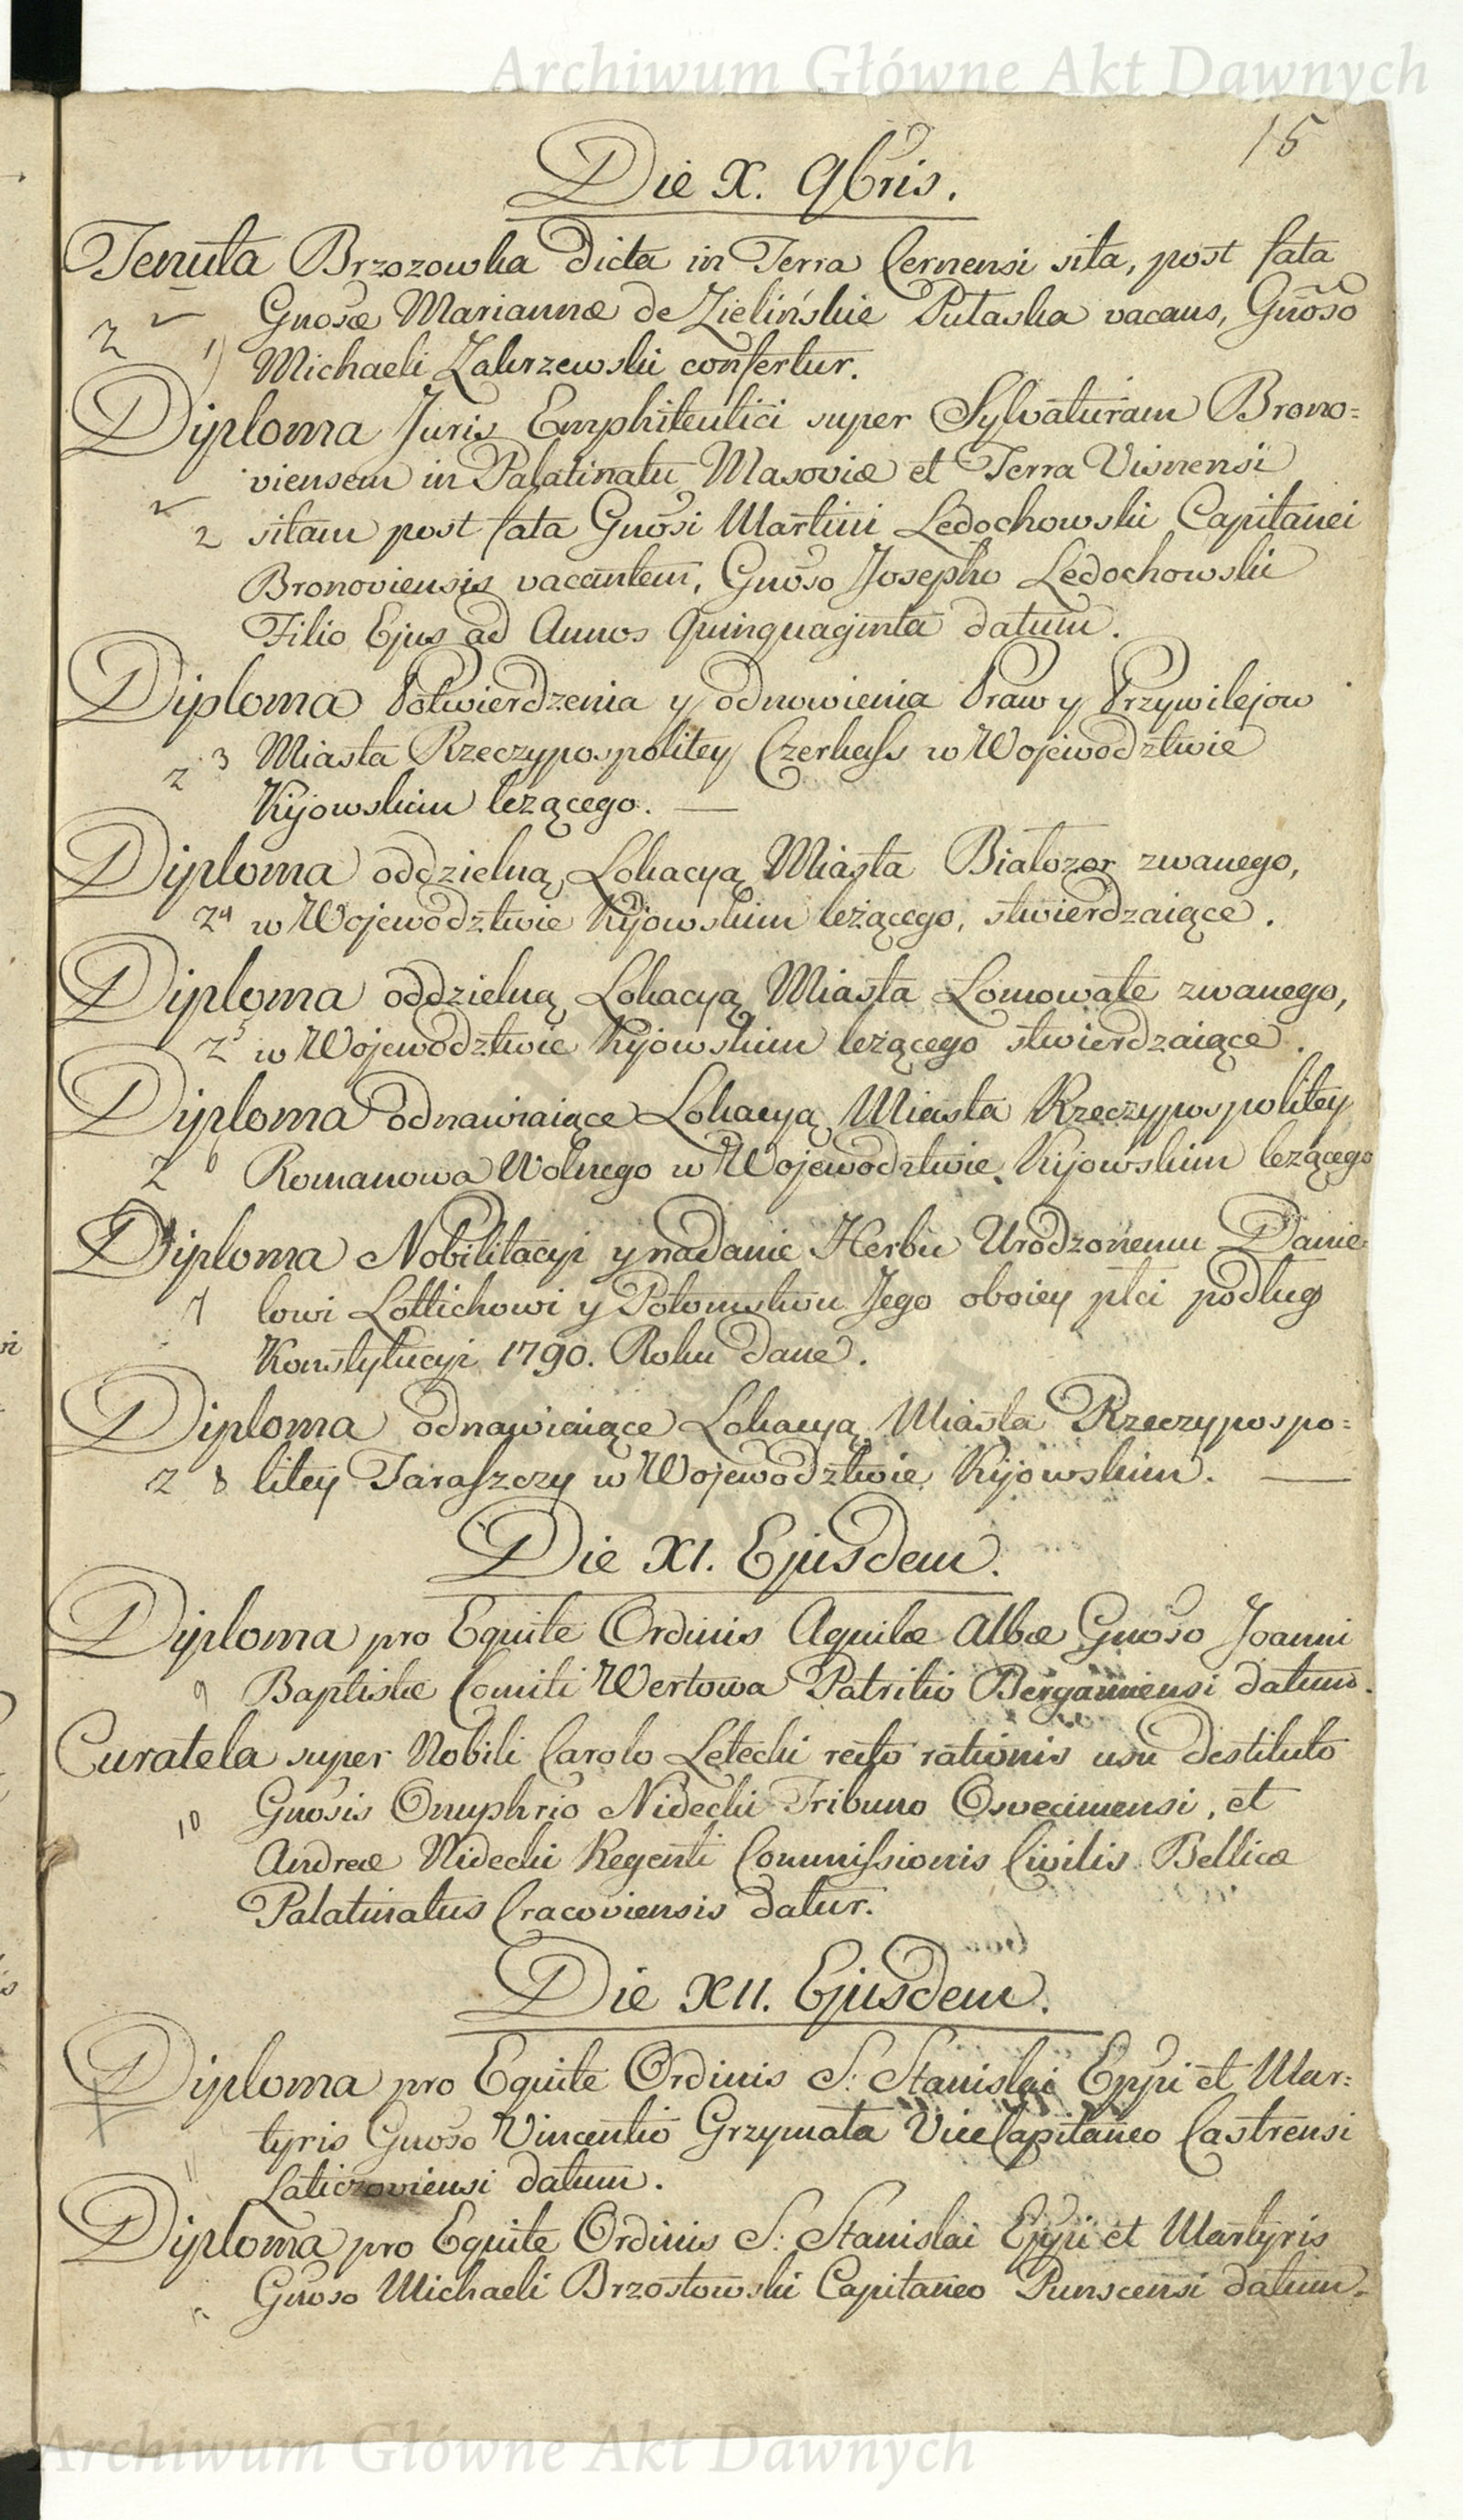 Archiwum Główne Akt Dawnych
15
Die X. 9bris.
Tenuta Brzozowka dicta in Terra Cernensi sita, post fata
Gnosæ Mariannæ de Zielińskie Pułaska vacans, Gnoso
2 1) Michaeli Zakrzewski confertur.
Diploma Juris Emphiteutici super Sylvaturam Brono=
viensem in Palatinatu Masoviæ et Terra Visnensi
2 sitam post fata Gnosi Martini Ledochowski Capitanei
Bronoviensis vacantem, Gnoso Josepho Ledochowski
Filio Ejus ad Annos Quinquaginta datum.
Diploma Potwierdzenia y odnowienia Praw y Przywilejow
2 3 Miasta Rzeczypospolitey Czerkass w Wojewodztwie
Kijowskim leżącego. —
Diploma oddzielną Lokacyą Miasta Białozor zwanego,
2 4 w Wojewodztwie Kijowskim leżącego, stwierdzaiące.
Diploma oddzielną Lokacyą Miasta Łomowate zwanego,
2 5 w Wojewodztwie Kijowskim leżącego stwierdzaiące.
Diploma odnawiaiące Lokacyą Miasta Rzeczypospolitey
2 6 Romanowa Wolnego w Wojewodztwie Kijowskim leżącego
Diploma Nobilitacyi y nadanie Herbu Urodzonemu Danie-
7 lowi Lottichowi y Potomstwu Jego oboiey płci podług
Konstytucyi 1790. Roku dane.
Diploma odnawiaiące Lokacyą Miasta Rzeczypospo=
2 8 litey Taraszczy w Wojewodztwie Kijowskim. —
Die XI. Ejusdem.
Diploma pro Equite Ordinis Aquilæ Albæ Gnoso Joanni
9 Baptistæ Comiti Wertowa Patritio Bergamensi datum.
Curatela super Nobili Carolo Letecki recto rationis usu destituto
10 Gnosis Onuphrio Nidecki Tribuno Osvecimensi, et
Andreæ Nidecki Regenti Commissionis Civilis Bellicæ
Palatinatus Cracoviensis datur.
Die XII. Ejusdem.
Diploma pro Equite Ordinis S: Stanislai Eppi et Mar=
tyris Gnoso Vincentio Grzymała ViceCapitaneo Castrensi
11 Laticzoviensi datum.
Diploma pro Equite Ordinis S: Stanislai Eppi et Martyris
Gnoso Michaeli Brzostowski Capitaneo Punscensi datum.
Archiwum Główne Akt Dawnych